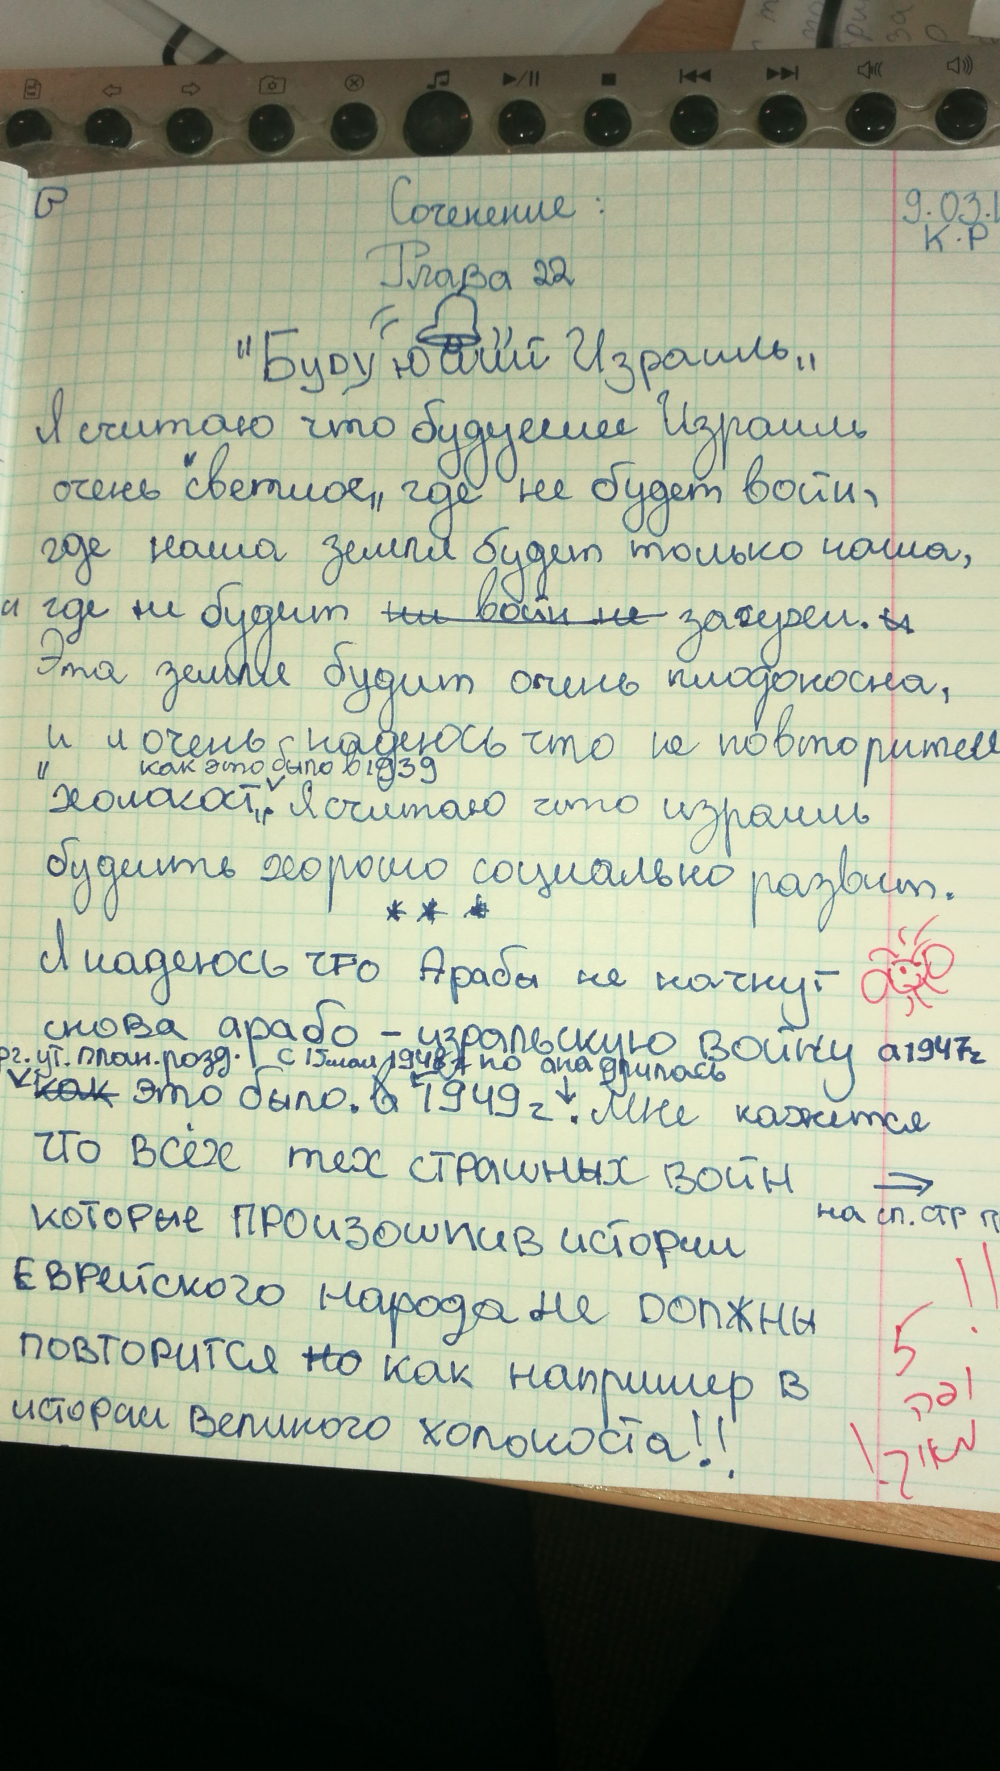 Соченение :
9.03.1
К.Р
Глава 22
"Будующий Израиль„
Я считаю что будущии Израиль
очень "светлое„ где не будет войн,
где наша земля будет только наша,
и где не будит ни войн не засухи. и
Эта земля будит очень плодокосна,
и я очень надеюсь что не повторится
как это было в 1939
"холакост„. Я считаю что израиль
будить хорошо социально развит.
* * *
Я надеюсь что Арабы не начнут
снова арабо-изральскую войну а1947г
рг. ут. план. розд. с 15мая 1948г по она длилась
как это было. в 1949г. Мне кажится
что всех тех страшных войн
на сл. стр
которые произошли в истории
Еврейского народа не должны
повторится но как например в
истории Великого холокоста!!
!!
5
יפה
מאוד!